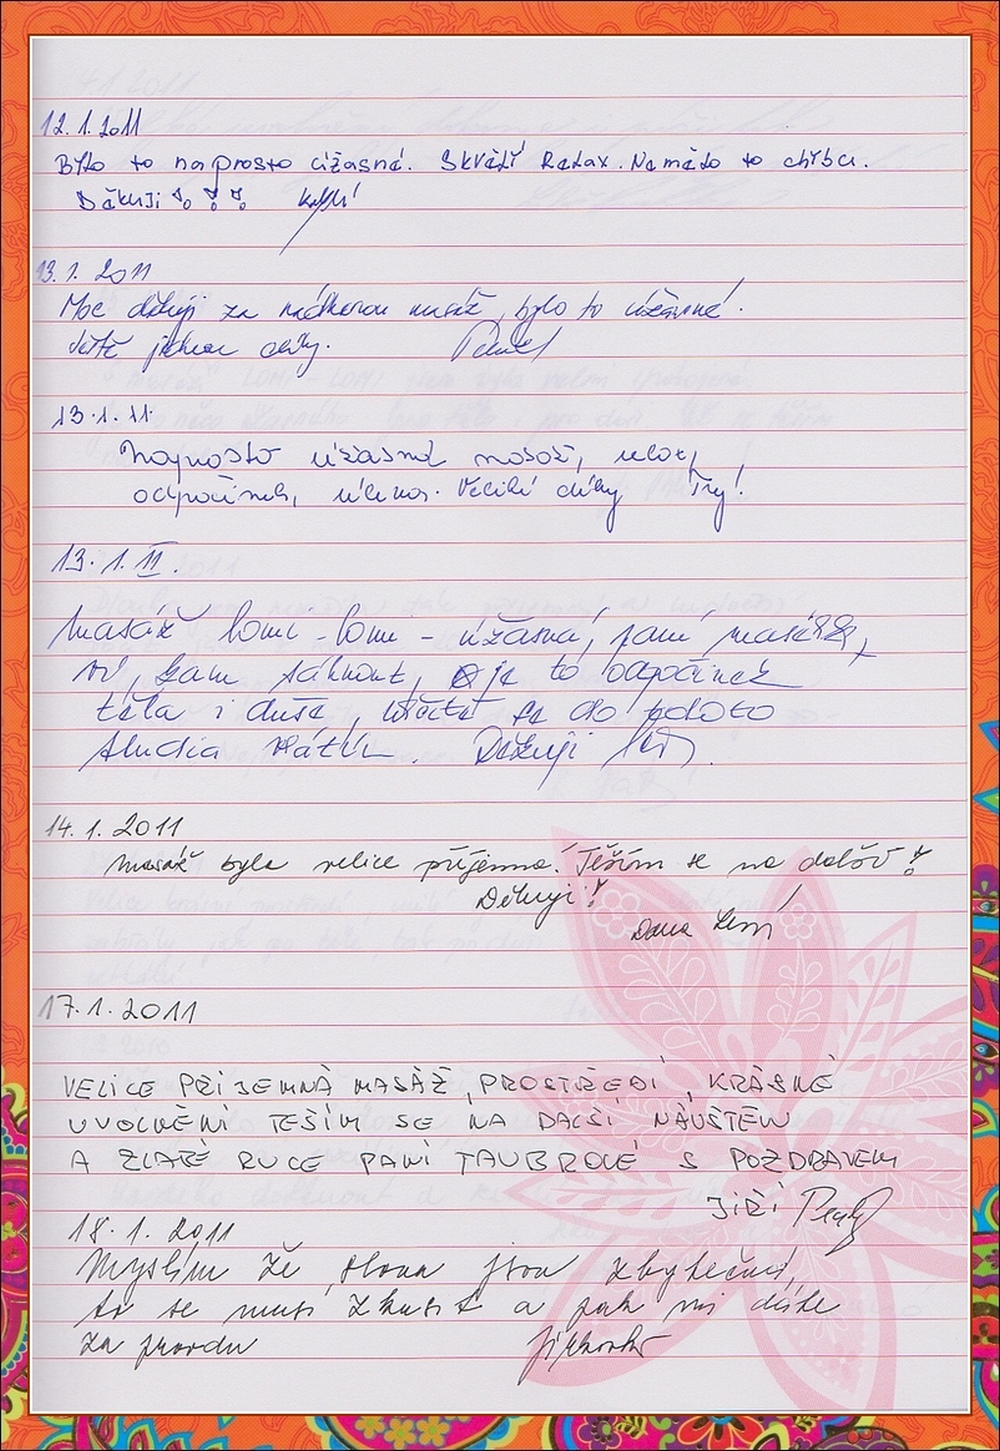 12.1.2011
Bylo to naprosto úžasné. Skvělý Relax. Nemělo to chybu.
Děkuji !!!
13.1.2011
Moc děkuji za nádhernou masáž, bylo to úžasné!
Ještě jednou díky. Pavel
13.1.11
Naprosto úžasná masáž, relax,
odpočinek, úleva. Veliké díky Ivy!
13.1.11.
Masáž lomi-lomi - úžasná, paní masérka,
ví, kam sáhnout, je to odpočinek
těla i duše, vřele se do tohoto
studia vrátím. Děkuji
14.1.2011
Masáž byla velice příjemná. Těším se na další!
Děkuji!
Dana
17.1.2011
VELICE PŘIJEMNÁ MASÁŽ, PROSTŘEDÍ, KRÁSNÉ
UVOLNĚNÍ TEŠÍM SE NA DALŠÍ NÁVŠTĚW
A ZLATÉ RUCE PANÍ TAUBROVÉ S POZDRAVEM
JIŘÍ
18.1.2011
Myslím že slova jsou zbytečná,
to se musí zkusit a pak mi dáte
za pravdu